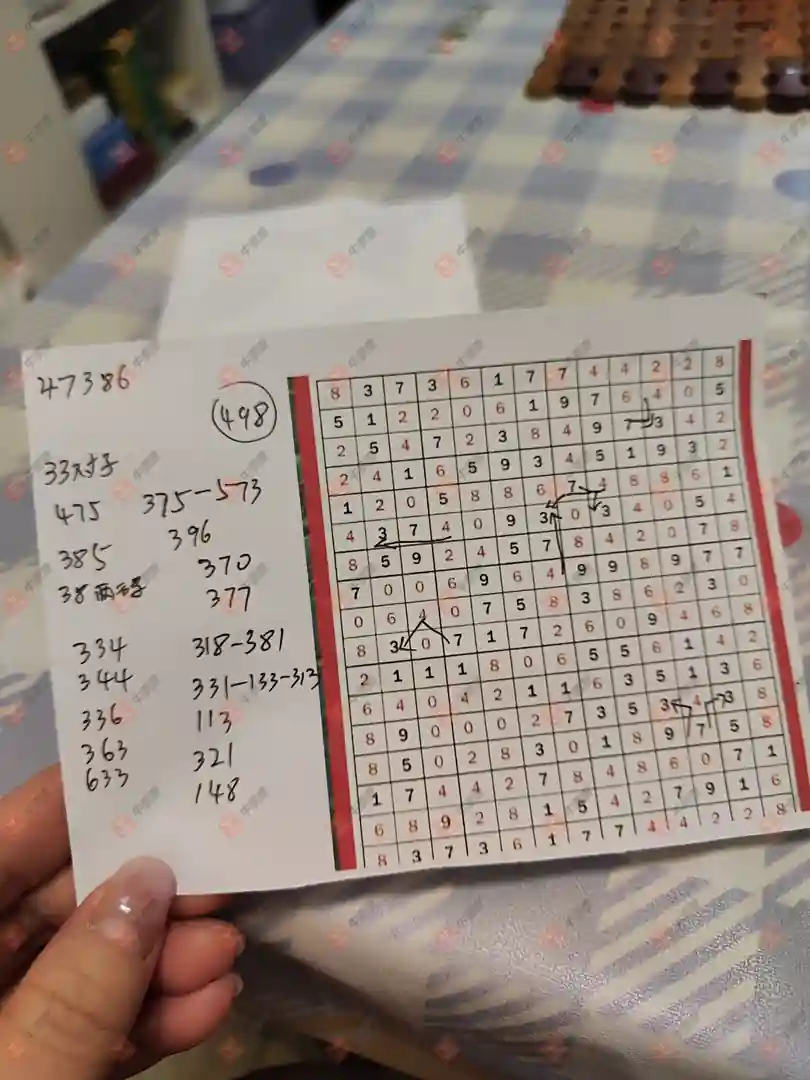 47386
498
33对子
475 375-573
396
385
370
38两码
377
334 318-381
344 331-133-313
336 113
363 321
633 148
8 3 7 3 6 1 7 7 4 4 2 2 8
5 1 2 2 0 6 1 9 7 6 4 0 5
2 5 4 7 2 3 8 4 9 7 3 4 2
2 4 1 6 5 9 3 4 5 1 9 3 2
1 2 0 5 8 8 6 7 4 8 8 6 1
4 3 7 4 0 9 3 0 3 4 0 5 4
8 5 9 2 4 5 7 8 4 2 0 7 8
7 0 0 6 9 6 4 9 9 8 9 7 7
0 6 4 0 7 5 8 3 8 6 2 3 0
8 3 0 7 1 7 2 6 0 9 4 6 8
2 1 1 1 8 0 6 5 5 6 1 4 2
6 4 0 4 2 1 1 6 3 5 1 3 6
8 9 0 0 0 2 7 3 5 3 4 3 8
8 5 0 2 8 3 0 1 8 9 7 5 8
1 7 4 4 2 7 8 4 8 6 0 7 1
6 8 9 2 8 1 5 4 2 7 9 1 6
8 3 7 3 6 1 7 7 4 4 2 2 8